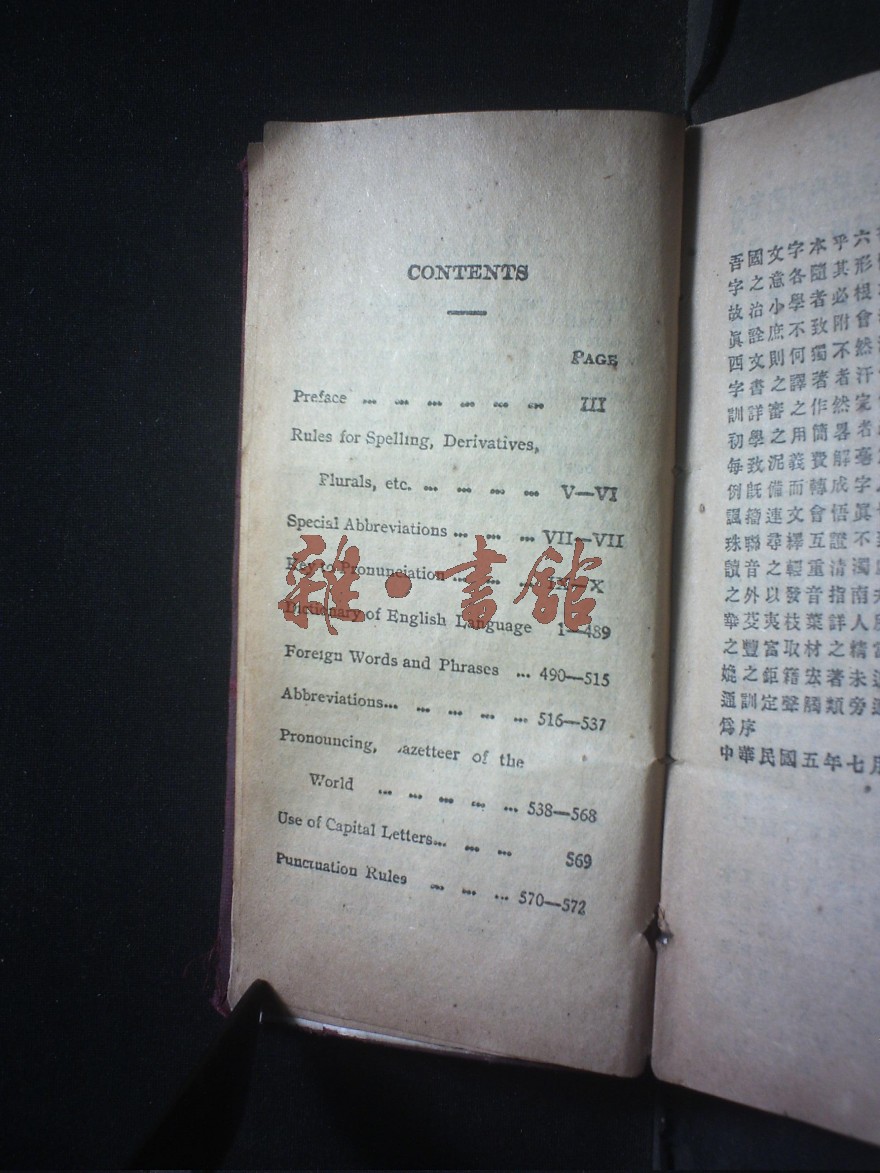 CONTENTS
PAGE
Preface ... ... ... ... ... ... III
Rules for Spelling, Derivatives,
Plurals, etc. ... ... ... ... V—VI
Special Abbreviations ... ... ... VII—VII
Key to Pronunciation ... ... ... IX—X
Dictionary of English Language 1—489
Foreign Words and Phrases ... 490—515
Abbreviations... ... ... ... ... 516—537
Pronouncing, azetteer of the
World ... ... ... ... ... 538—568
Use of Capital Letters... ... ... 569
Punctuation Rules ... ... ... 570—572
雜·書館
吾國文字本乎六
字之意各隨其形
故治小學者必根
眞詮庶不致附會
西文則何獨不然
字書之譯著者汗
訓詳審之作然家
初學之用簡畧者
每致泥義費解毫
例旣備而轉成字
諷籀連文會悟眞
珠聯尋擇互證不
讀音之輕重清濁
之外以發音指南
摯芟夷枝葉詳人
之豐富取材之精
嬈之鉅籍宏著未
通訓定聲觸類旁通
爲序
中華民國五年七月